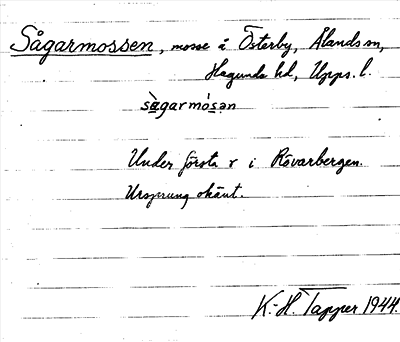 Sågarmossen, mosse å Österby, Ålands sn,
Hagunda hd, Upps. l.
sàgarmósan
Under första r i Rövarbergen.
Ursprung okänt.
K.-H. Tapper 1944.